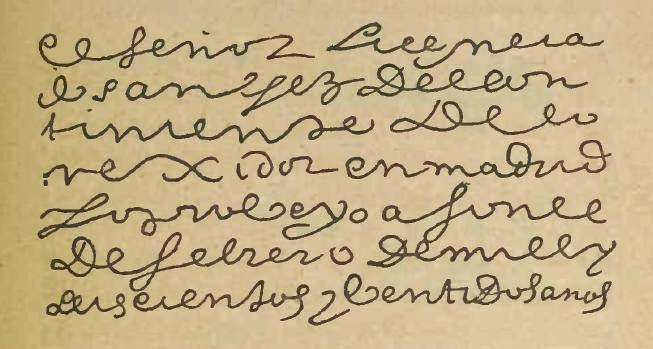 el señor licencia
do sanchez De leon
tiniente De co
rrexidor en madrid
Lo probeyo a honce
De febrero De mill y
seiscientos y bentidos años